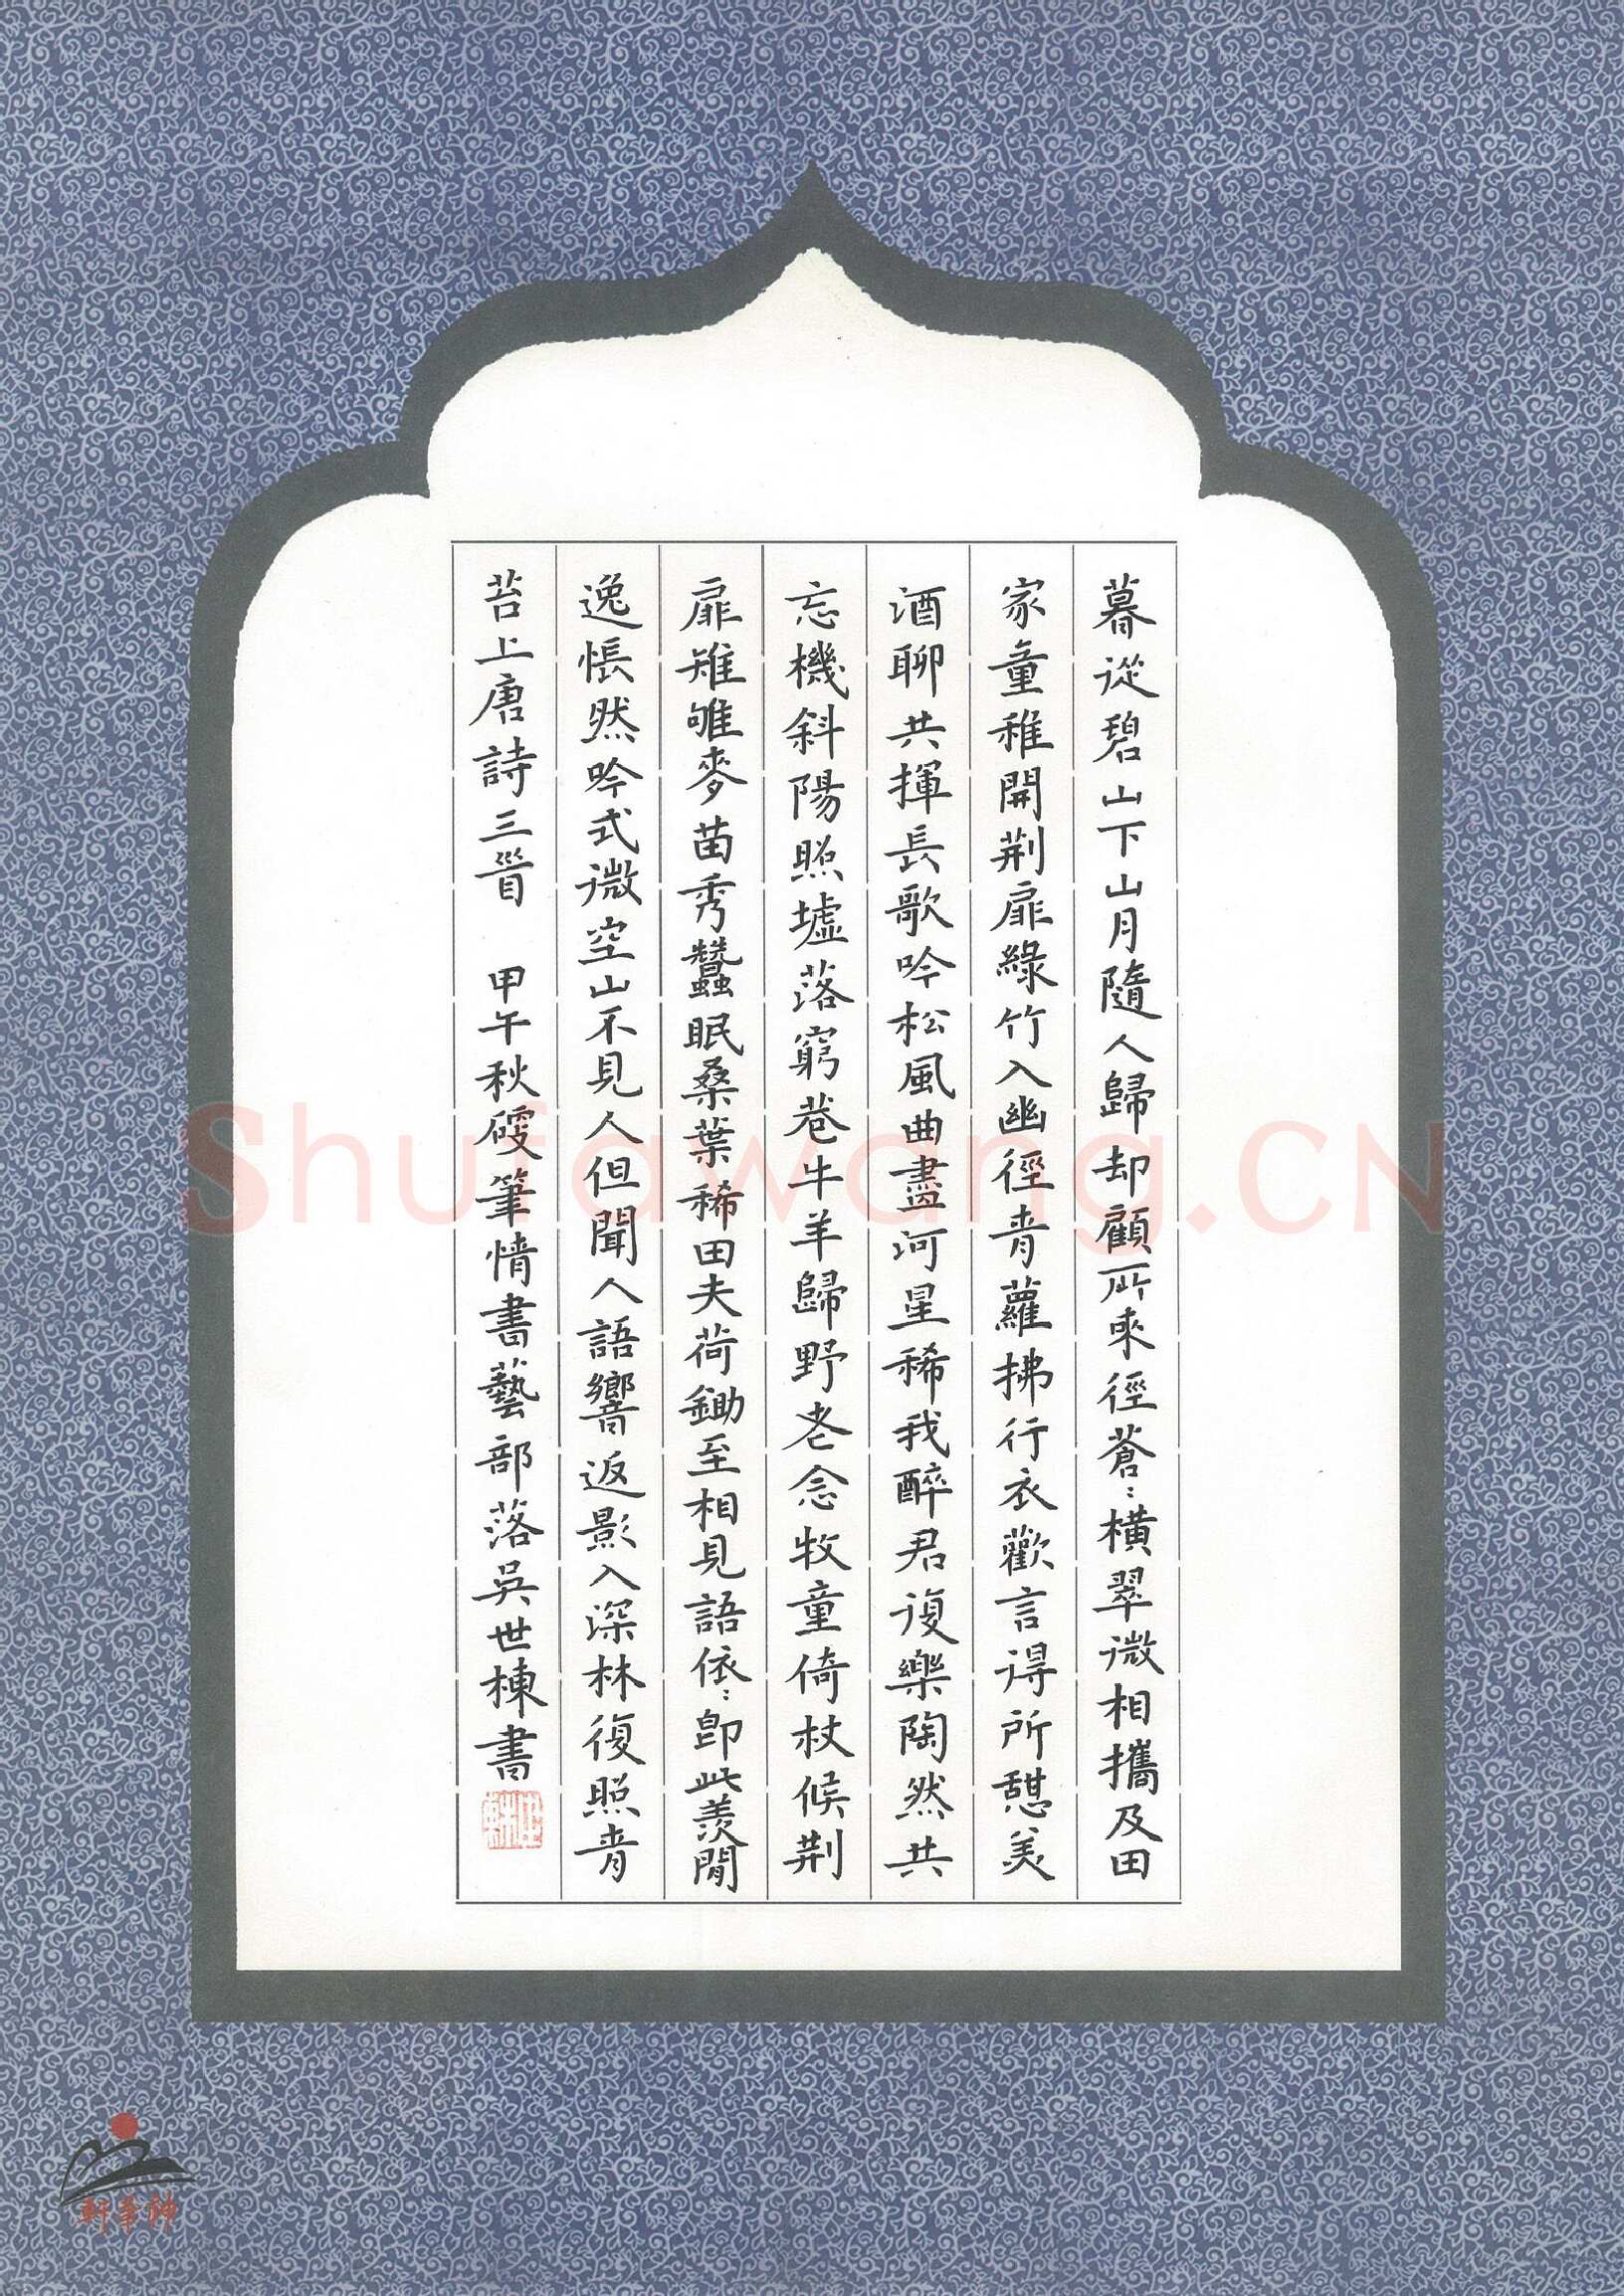 暮從碧山下山月隨人歸却顧所來徑蒼:橫翠微相攜及田
家童稚開荆扉綠竹入幽徑青蘿拂行衣歡言得所憩美
酒聊共揮長歌吟松風曲盡河星稀我醉君復樂陶然共
忘機斜陽照墟落窮巷牛羊歸野老念牧童倚杖候荆
扉雉雊麥苗秀蠶眠桑葉稀田夫荷鋤至相見語依:即此羨閒
逸悵然吟式微空山不見人但聞人語響返影入深林復照青
苔上唐詩三首 甲午秋硬筆情書藝部落吳世棟書
Shufawang.CN